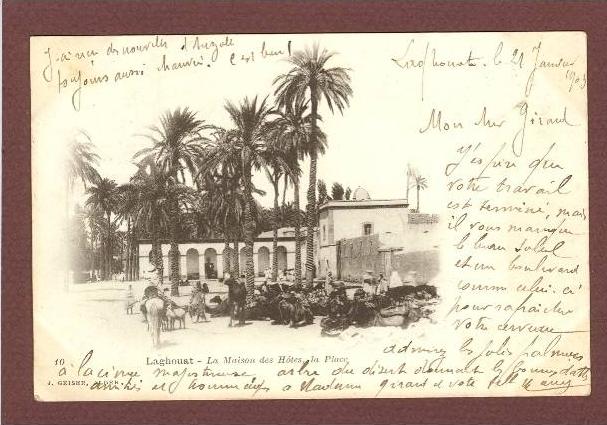 J'ai eu des nouvelles d'
toujours aussi
C'est beau!
Laghouat, le 21 Janvier 1903
Mon cher Girard
J'espère que
votre travail
est terminé, mais
il vous manque
le beau soleil
et un boulevard
comme celui-ci
pour rafraîchir
votre cerveau
admirez les jolis palmiers
10 Laghouat - La Maison des Hôtes, la Place
J. GEISER, ALGER.
à la cime majestueuse arbre du désert donnant les bonnes dattes
amitiés et hommages à Madame Girard et votre